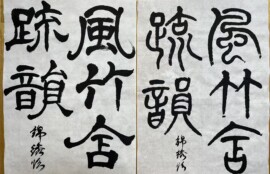 風竹含
疏韻
風竹含
疏韻